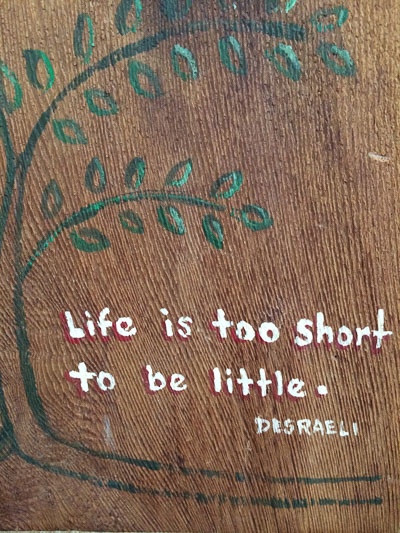 Life is too short
to be little.
DESRAELI